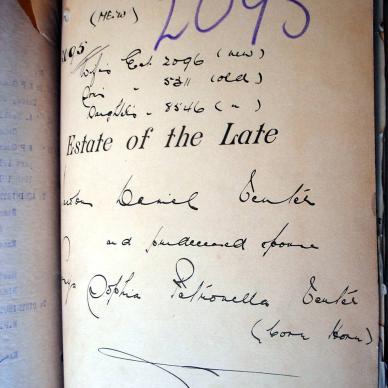 2095
(NEW)
Wife's Est. 2096 (new)
" 5311 (old)
Daughter's " 8546 ( " )
Estate of the Late
Daniel Venter
and predeceased spouse
Sophia Petronella Venter
(born Horn)